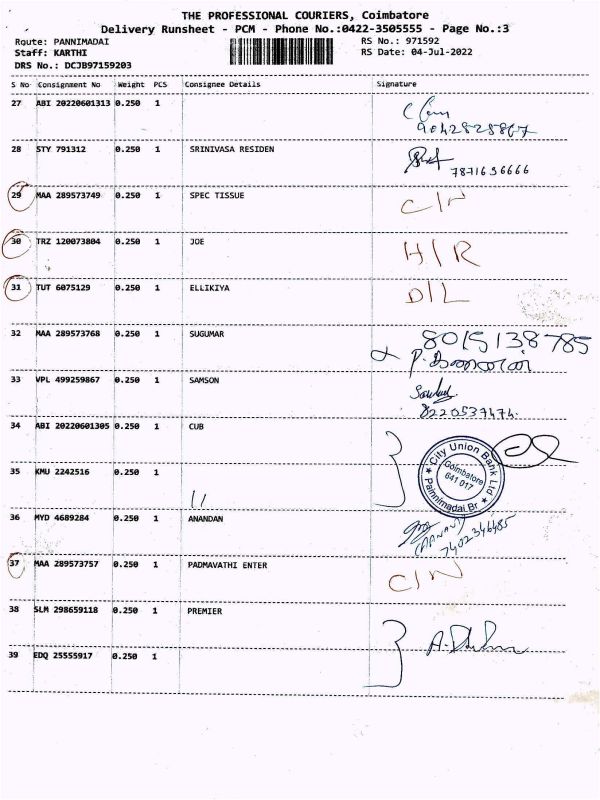 THE PROFESSIONAL COURIERS, Coimbatore
Delivery Runsheet - PCM - Phone No.:0422-3505555 - Page No.:3
Route: PANNIMADAI RS No.: 971592
Staff: KARTHI RS Date: 04-Jul-2022
DRS No.: DCJB97159203
S No Consignment No Weight PCS Consignee Details Signature
27 ABI 20220601313 0.250 1
9042828867
28 STY 791312 0.250 1 SRINIVASA RESIDEN
7871636666
29 MAA 289573749 0.250 1 SPEC TISSUE C/N
30 TRZ 120073804 0.250 1 JOE H/R
31 TUT 6075129 0.250 1 ELLIKIYA D/L
32 MAA 289573768 0.250 1 SUGUMAR 8015138785
33 VPL 499259867 0.250 1 SAMSON
8220537474
34 ABI 20220601305 0.250 1 CUB
City Union Bank Ltd
Coimbatore
641 017
Painnimadai.Br
35 KMU 2242516 0.250 1 11
36 MYD 4689284 0.250 1 ANANDAN
7402346485
37 MAA 289573757 0.250 1 PADMAVATHI ENTER C/N
38 SLM 298659118 0.250 1 PREMIER
39 EDQ 25555917 0.250 1